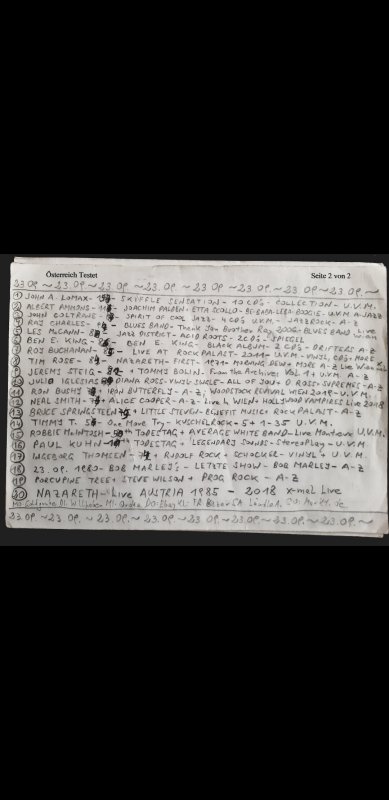 Österreich Testet Seite 2 von 2
23.09. ~ 23.09. ~ 23.09. ~ 23.09. ~ 23.09. ~ 23.09. ~ 23.09. ~
① JOHN A. LOMAX - SKIFFLE SENSATION - 10 CD's - COLLECTION - U.V.M.
② ALBERT AMMONS - JOACHIM PALDEN - BOOGIE - U.V.M. A-JAZZ
③ JOHN COLTRANE - SPIRIT OF COOL JAZZ - 4 CD's U.V.M. - JAZZROCK - A-Z
④ RAY CHARLES - BLUES BAND - Thank You Brother Ray 2006 - BLUES BAND Live Wien
⑤ LES MCCANN - JAZZ DISTRICT - ACID ROOTS - 2CD's - SPIEGEL
⑥ BEN E. KING - BEN E. KING - BLACK ALBUM - 2 CD's - DRIFTERS A-Z
⑦ ROY BUCHANAN - LIVE AT ROCKPALAST - 2011 - U.V.M. - VINYL, CD's + MORE
⑧ TIM ROSE - NAZARETH - FIRST - 1971 - MORNING DEW + MORE A-Z Live Wien
⑨ JEREMY STEIG + TOMMY BOLIN - From the Archives Vol. 1 + U.V.M. A-Z
⑩ JULIO IGLESIAS DIANA ROSS - VINYL SINGLE - ALL OF YOU - D. ROSS - SUPREMES - A-Z
⑪ RON BUSHY + IRON BUTTERFLY - A-Z, WOODSTOCK REVIVAL WIEN 2018 - U.V.M.
⑫ NEAL SMITH + ALICE COOPER - A-Z - Live in WIEN + HOLLYWOOD VAMPIRES Live 2018
⑬ BRUCE SPRINGSTEEN + LITTLE STEVEN - BENEFIT MUSIC + ROCKPALAST - A-Z
⑭ TIMMY T. - One More Try - KUSCHELROCK - 5 + 1-35 U.V.M.
⑮ ROBBIE McINTOSH - TODESTAG + AVERAGE WHITE BAND - Live Montreux U.V.M.
⑯ PAUL KUHN - TODESTAG + LEGENDARY SONGS - StereoPlay - U.V.M.
⑰ INGEBORG THOMSEN + RUDOLF ROCK + SCHOCKER - VINYL + U.V.M.
⑱ 23.09.1980 - BOB MARLEY'S - LETZTE SHOW - BOB MARLEY - A-Z
⑲ PORCUPINE TREE + STEVE WILSON + PROG ROCK - A-Z
⑳ NAZARETH - Live AUSTRIA 1985 - 2018 x-mal Live
23.09. ~ 23.09. ~ 23.09. ~ 23.09. ~ 23.09. ~ 23.09. ~ 23.09. ~